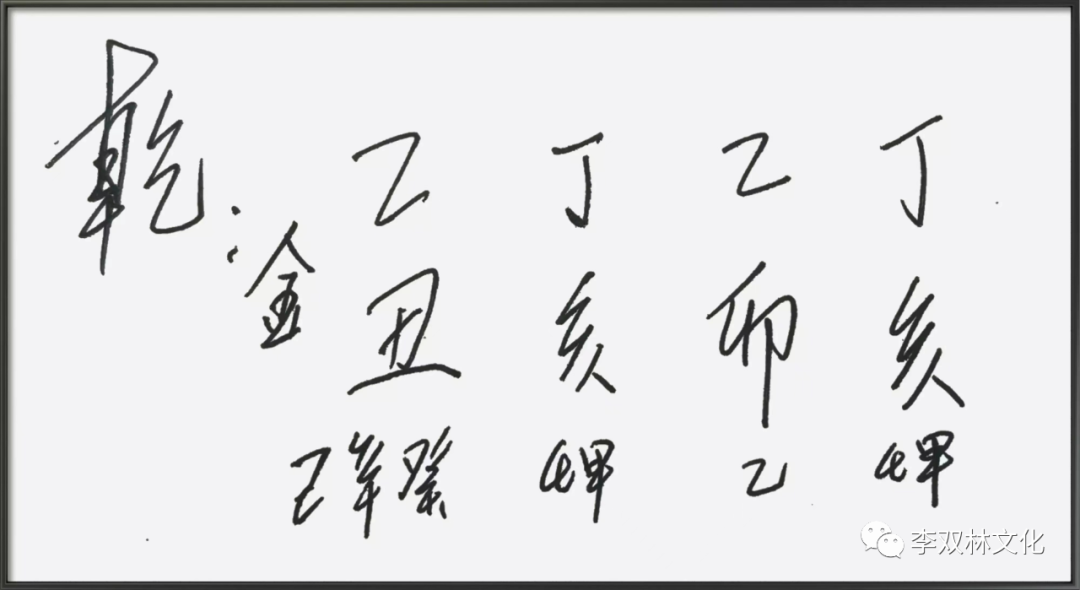 乾：乙 丁 乙 丁
金 丑 亥 卯 亥
己辛癸 壬甲 乙 壬甲
李双林文化